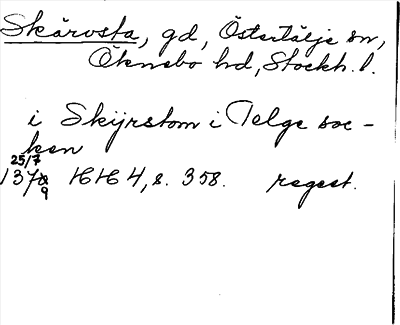 Skårvsta, gd, Östertälje sn,
Öknebo hd, Stockh. l.
i Skijrstom i Telge soc-
ken
25/7
1379 HH 4, s. 358. regest.